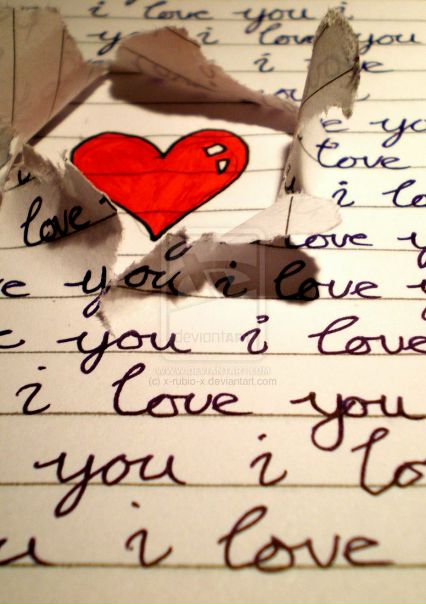 i love you i
you i love you
i love
you
e yo
love
love i lo
love y
e you i love y
e you i love
deviantART
WWW.DEVIANTART.COM
(c) x-rubio-x.deviantart.com
i love you
you i lo
u i love